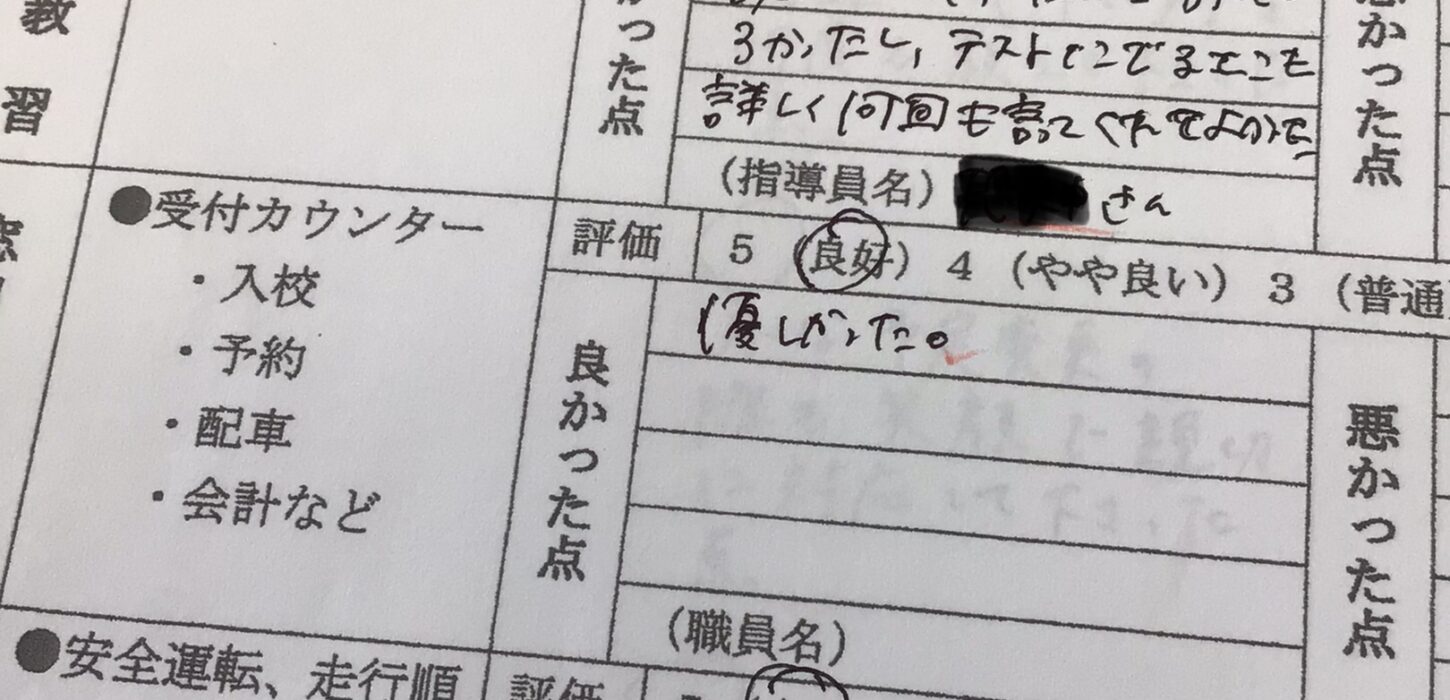 教習
かった点
かった点
3かったし、テストでこでるてこも
詳しく何回も言ってくれてよかった
(指導員名) さん
●受付カウンター
・入校
・予約
・配車
・会計など
評価 5 (良好) 4 (やや良い) 3 (普通
良かった点
優しかった。
悪かった点
(職員名)
●安全運転、走行順
評価